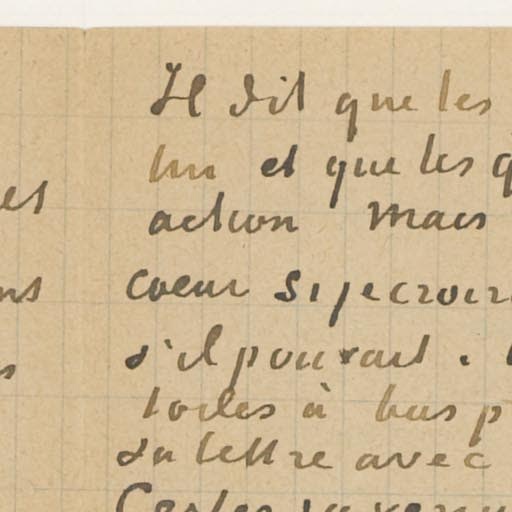 Il dit que les
lui et que les
action mais
coeur si je croir
s'il pouvait.
toiles à bas p
sa lettre avec